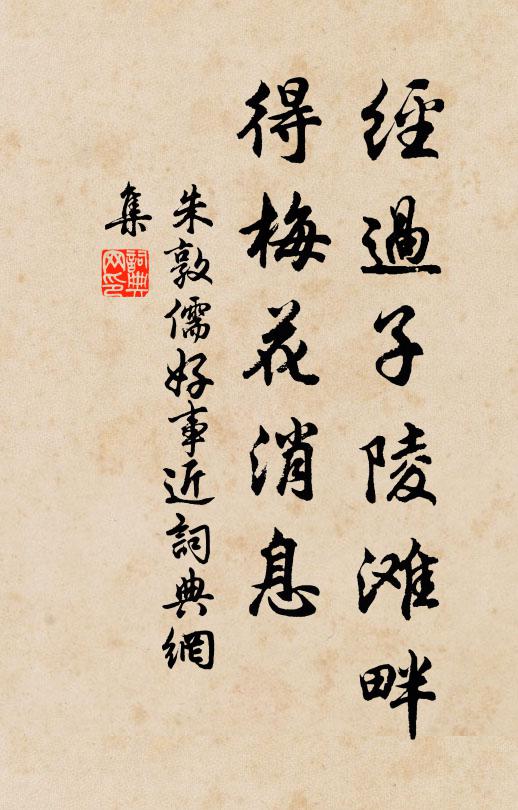 經過子陵滩畔
得梅花消息
朱敦儒好事近詞典網
集
詞典
网印